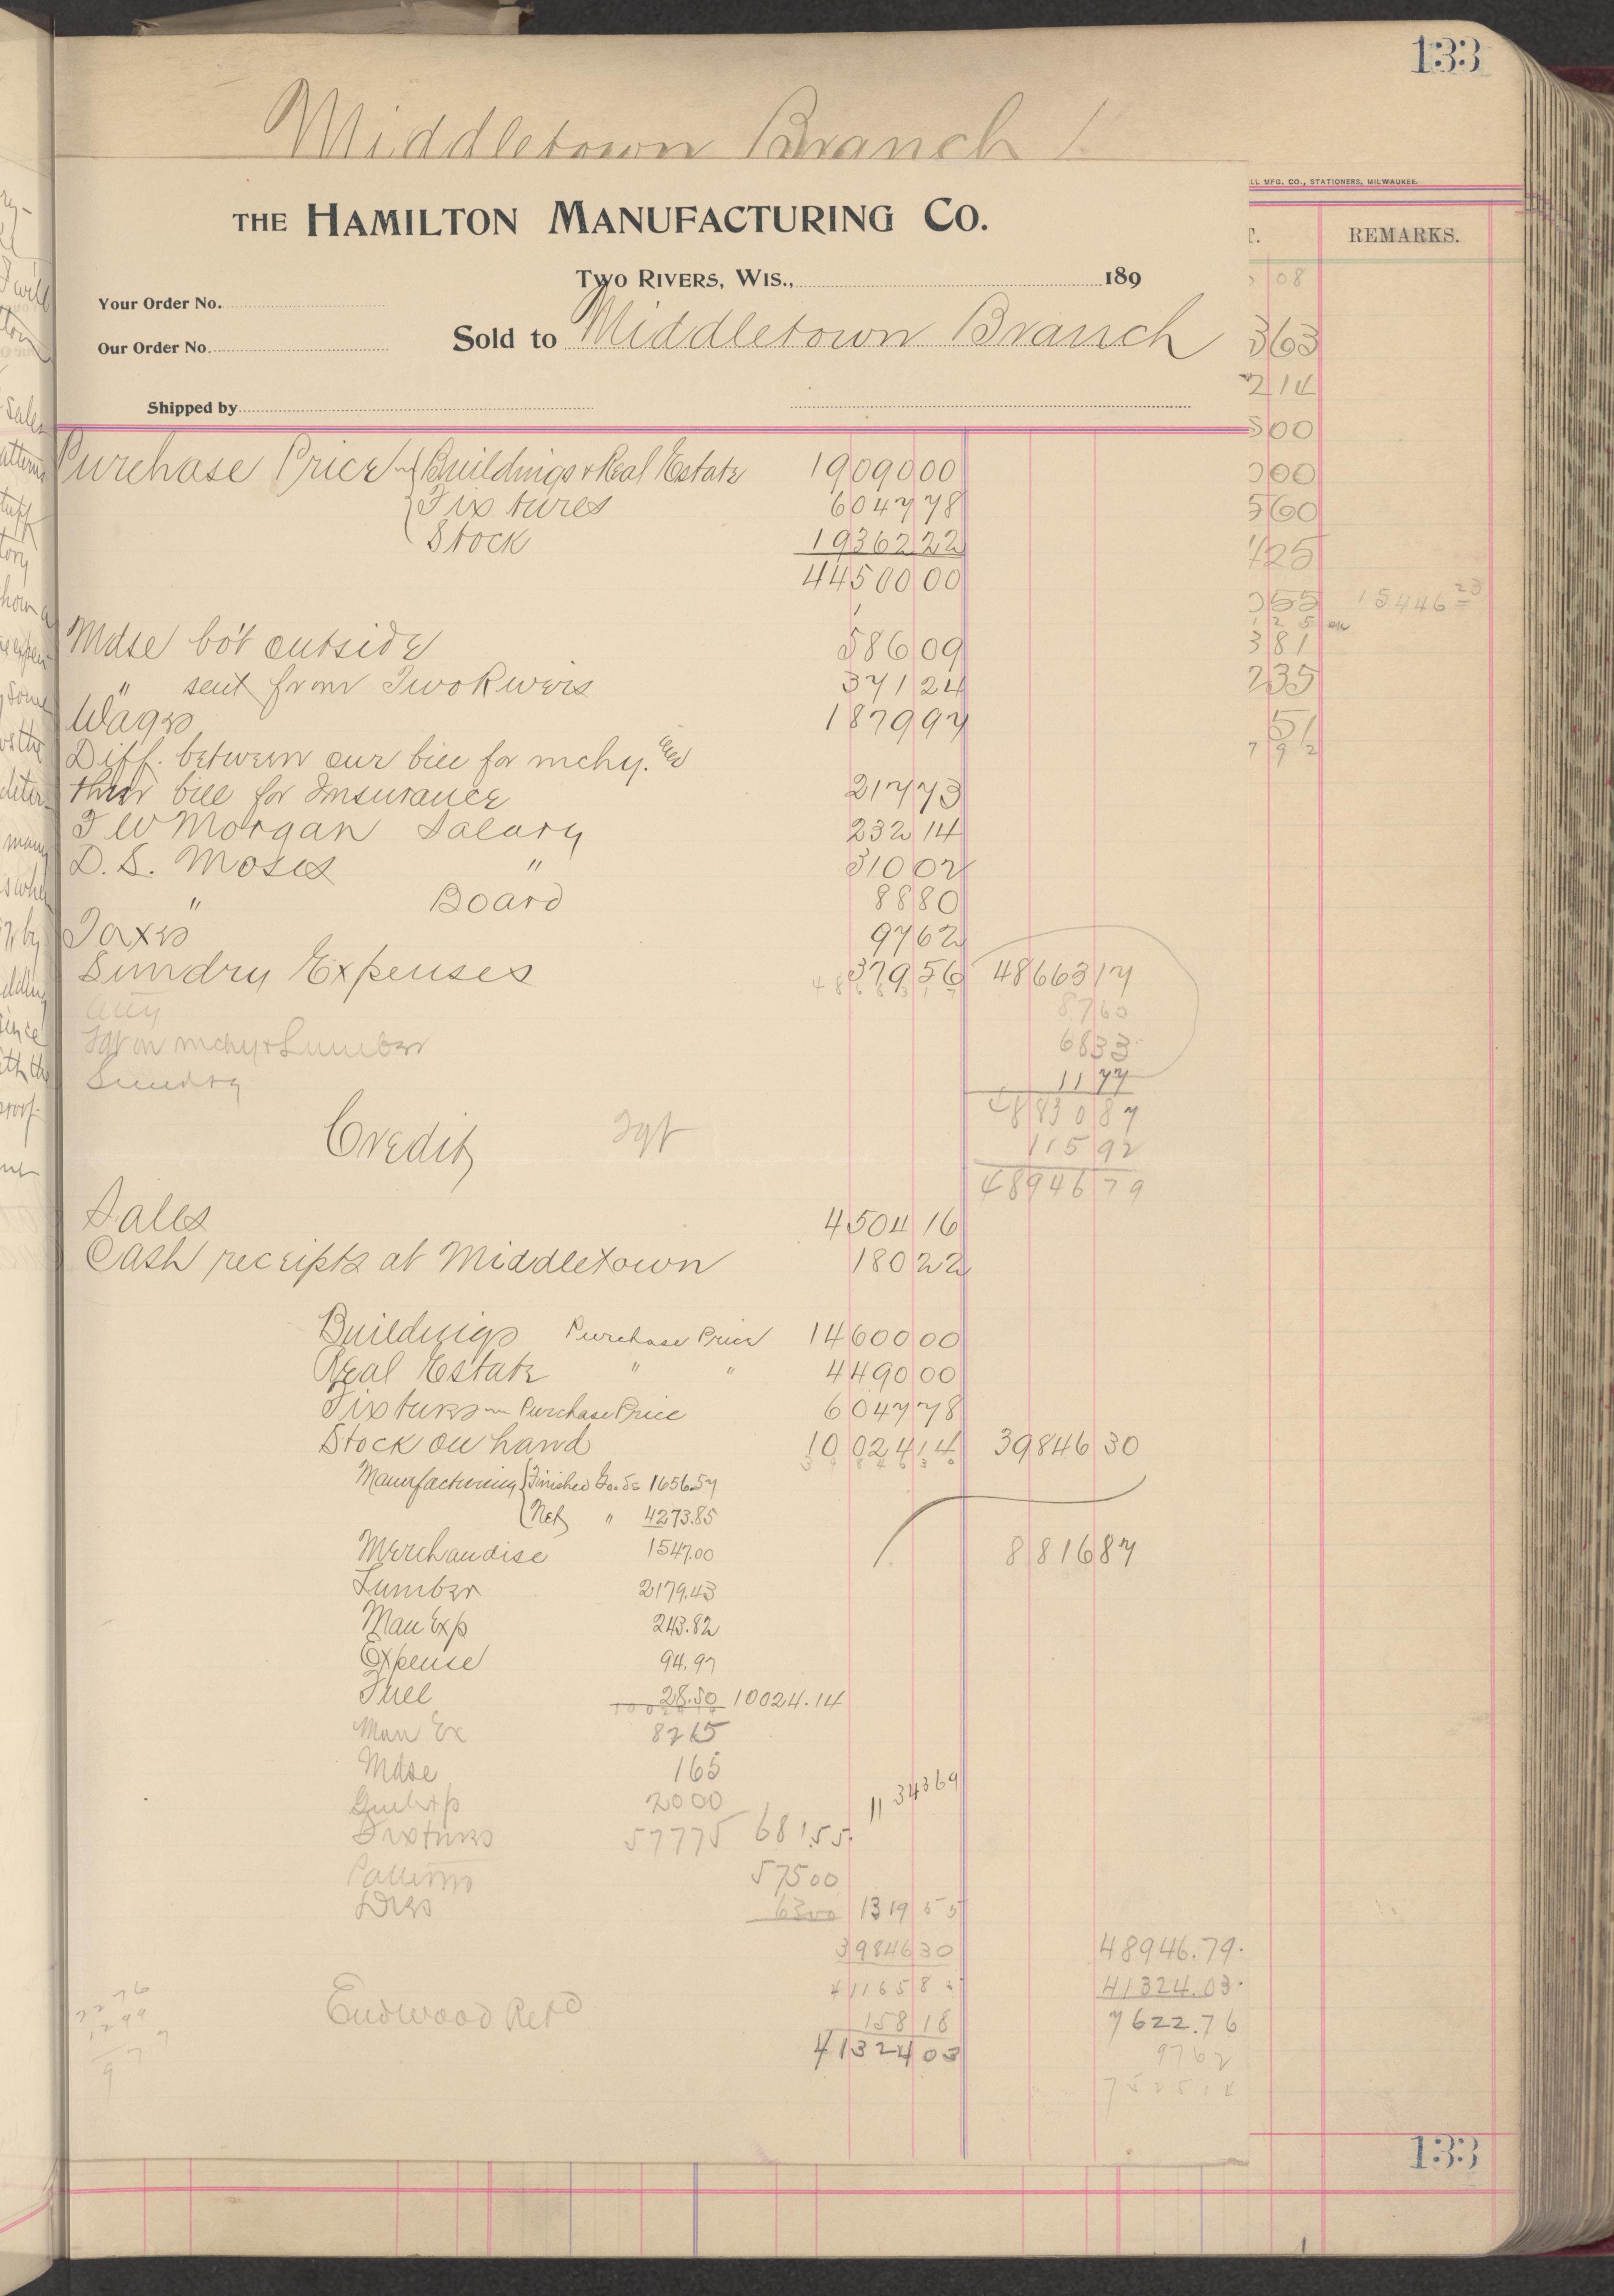 133
Middletown Branch
LL MFG. CO., STATIONERS, MILWAUKEE.
THE HAMILTON MANUFACTURING CO.
T. REMARKS.
TWO RIVERS, WIS., 189
Your Order No.
Our Order No.
Sold to Middletown Branch
Shipped by
08
363
214
500
000
560
425
055 15446 23
381
235
51
7 92
Purchase Price Buildings & Real Estate 19090 00
Fixtures 6047 78
Stock 19362 22
44500 00
Mdse bo't outside 586 09
" sent from Two Rivers 371 24
Wages 1879 97
Diff. between our bill for mchy. and
their bill for Insurance 217 73
F W Morgan Salary 232 14
D. S. Moses " 310 02
" Board 88 80
Taxes 97 62
Sundry Expenses 379 56 48663 17
486 63 17
87 60
Fgt on mchy & Lumber 68 33
Sundry 11 77
48830 87
Credit Fgt 115 92
48946 79
Sales 4504 16
Cash receipts at Middletown 180 22
Buildings Purchase Price 14600 00
Real Estate " " 4490 00
Fixtures Purchase Price 6047 78
Stock on hand 10024 14 39846 30
39846 30
Manufacturing Finished Goods 1656.57
Net " 4273.85
Merchandise 1547.00 8816 87
Lumber 2179.43
Man Exp 243.82
Expense 94.97
Fuel 28.50 10024.14
10024 14
Man Ex 82 15
Mdse 1 65
20 00
11343 69
Fixtures 577 75 681.55
Patterns 575 00
Dies 63 00 1319 55
39846 30 48946.79
41165 85 41324.03
Endwood Ret'd 158 18 7622.76
41324 03 97 62
7525 14
133